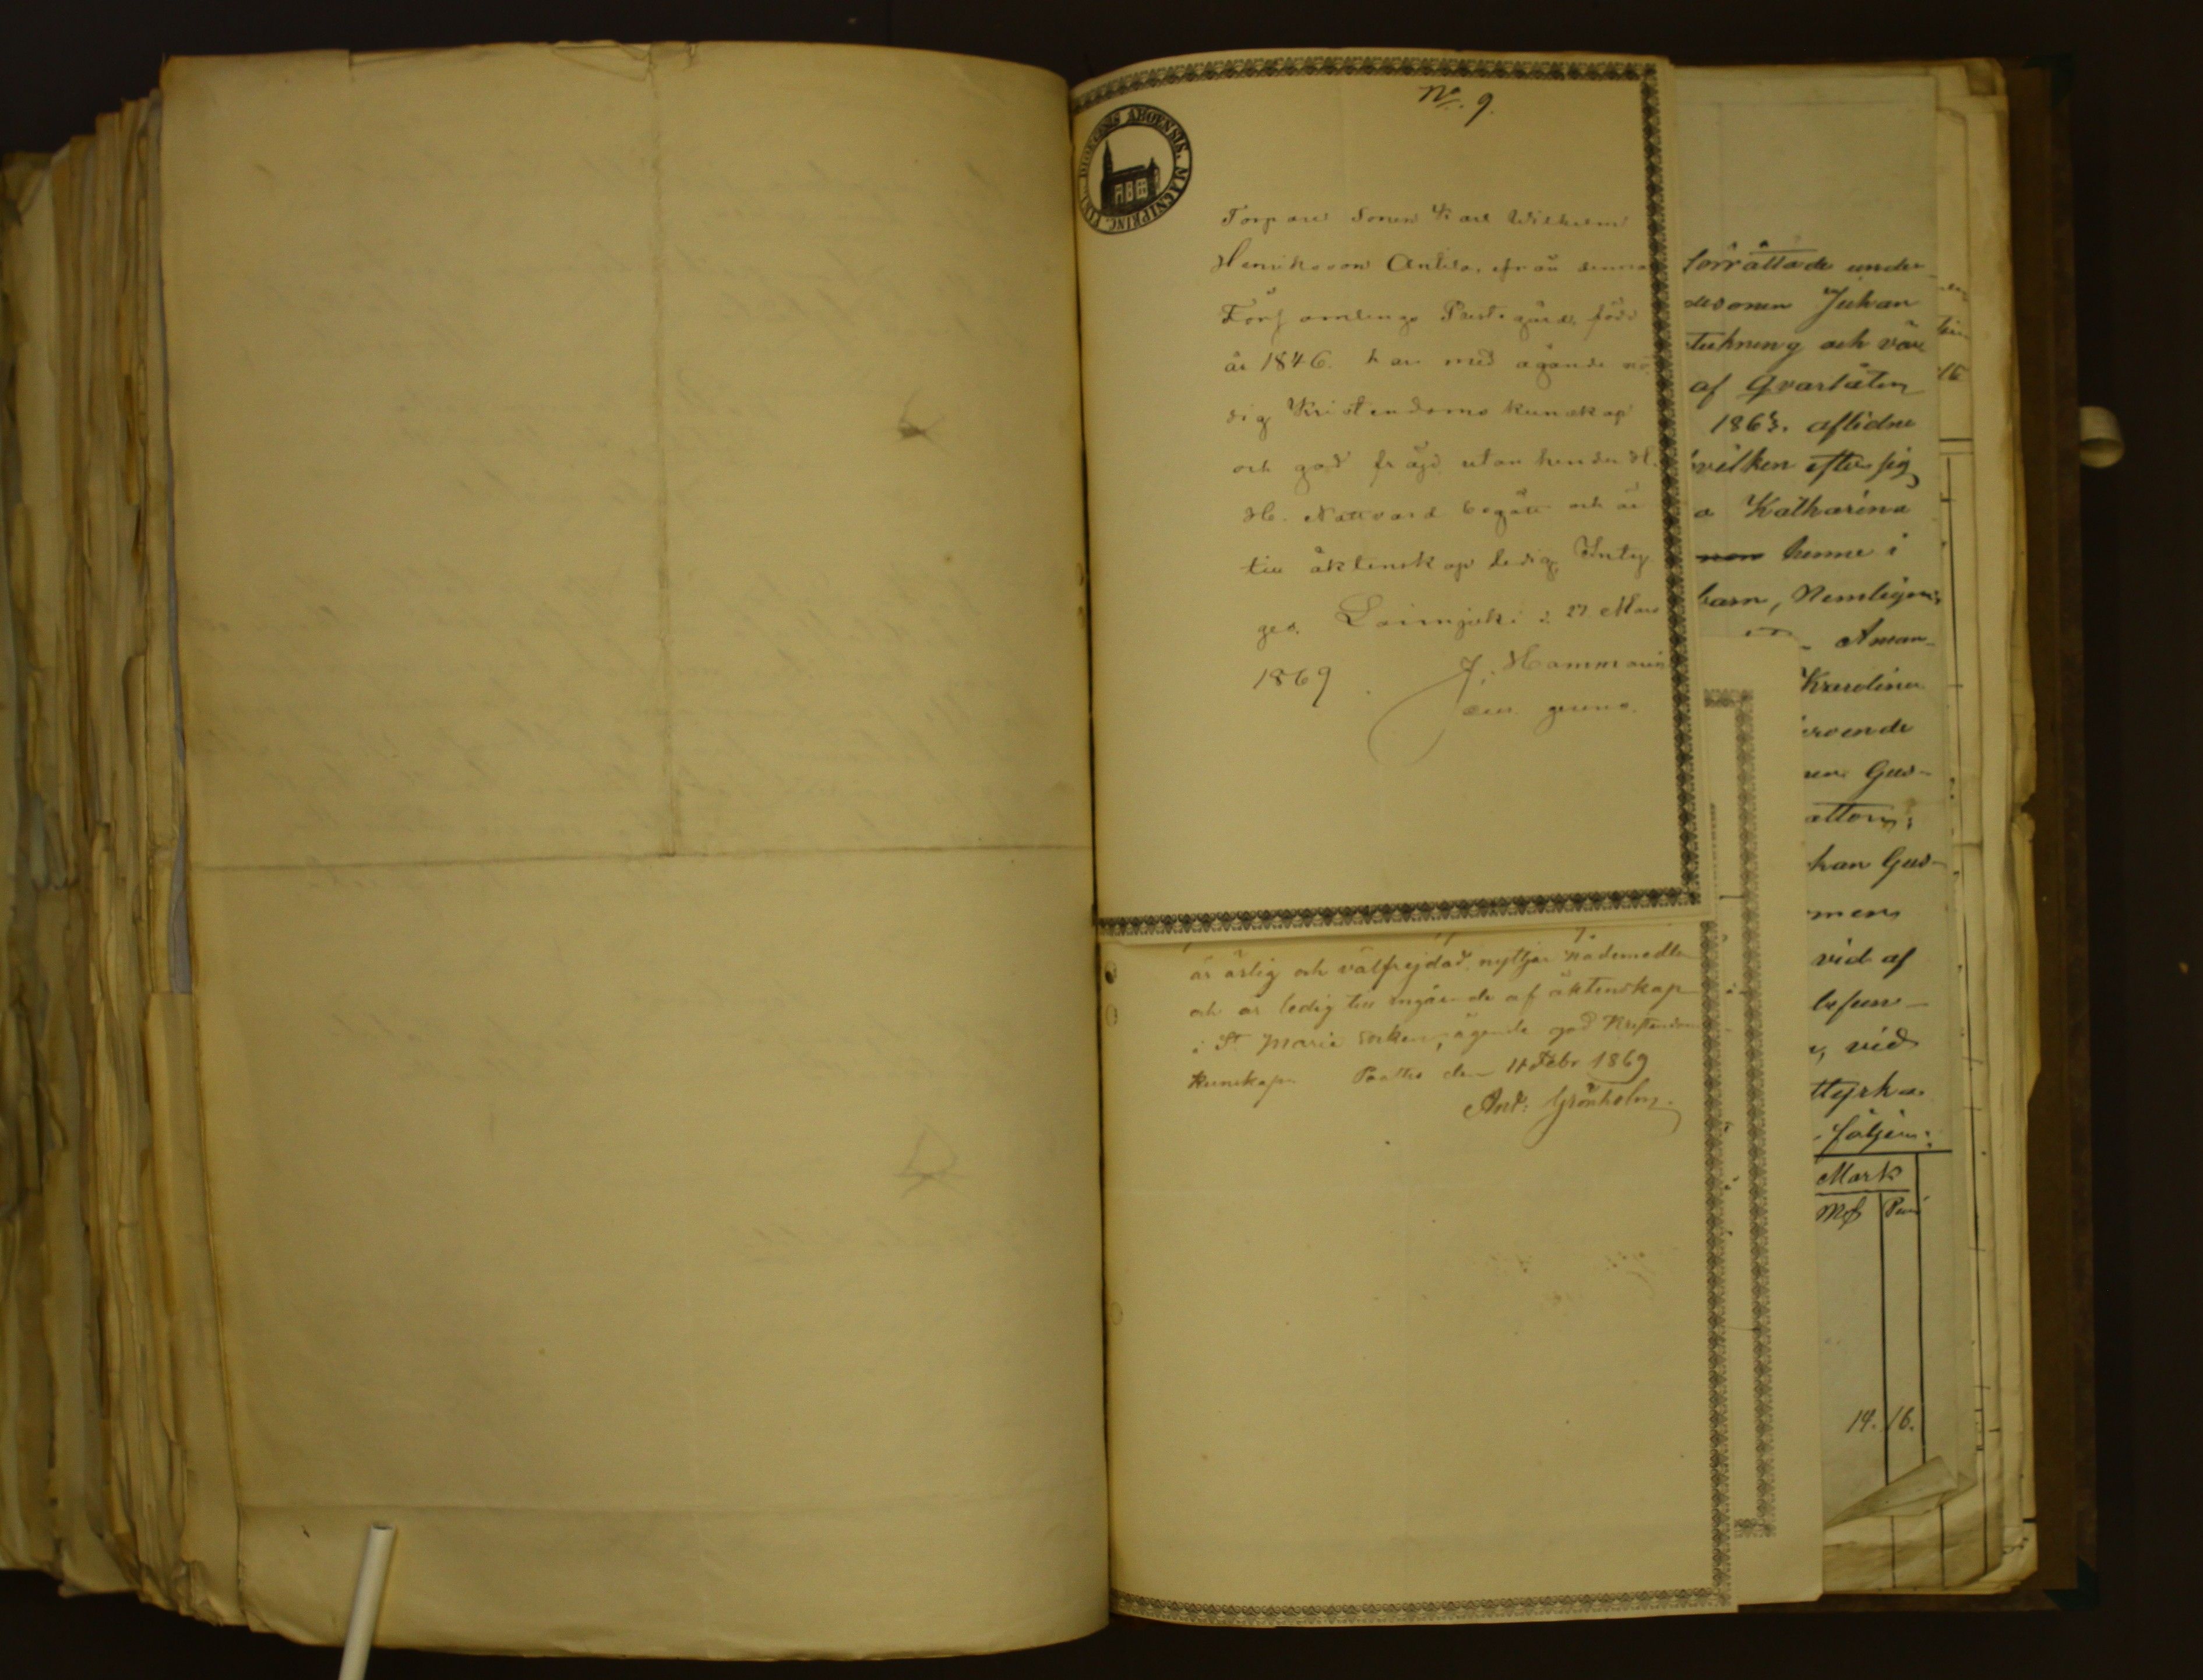 No. 9.
DIOECESIS ABOENSIS. MAGNI PRINC.
Torpare Sonen Karl Wilhelm
Henriksson Antila, från denna
Församlings Prestgård, född
år 1846. har med ägande nö-
dig Kristendoms kunskap
och god frägd utan hinder H.
H. Nattvard begått och är
till äktenskap ledig, Intyg
ges. Loimijoki i 27 Mars
1869 J. Hammarin
är ärlig och välfrejdad, nyttjar Nådemedlen
och är ledig till ingående af äktenskap
i St Marie Socken, ägende god Kristendoms
Kunskap. Paattis den 11 Febr 1869
And: Grönholm.
förrättade under
desonen Johan
af Qvarlåten
1863. aflidne
hvilken efter sig
a Katharina
henne i
barn, Nemligen;
Aman-
Karolina
roende
Gus-
han Gus-
vid af
befun-
vid
följer:
Mark
Mk Pen
14. 16.